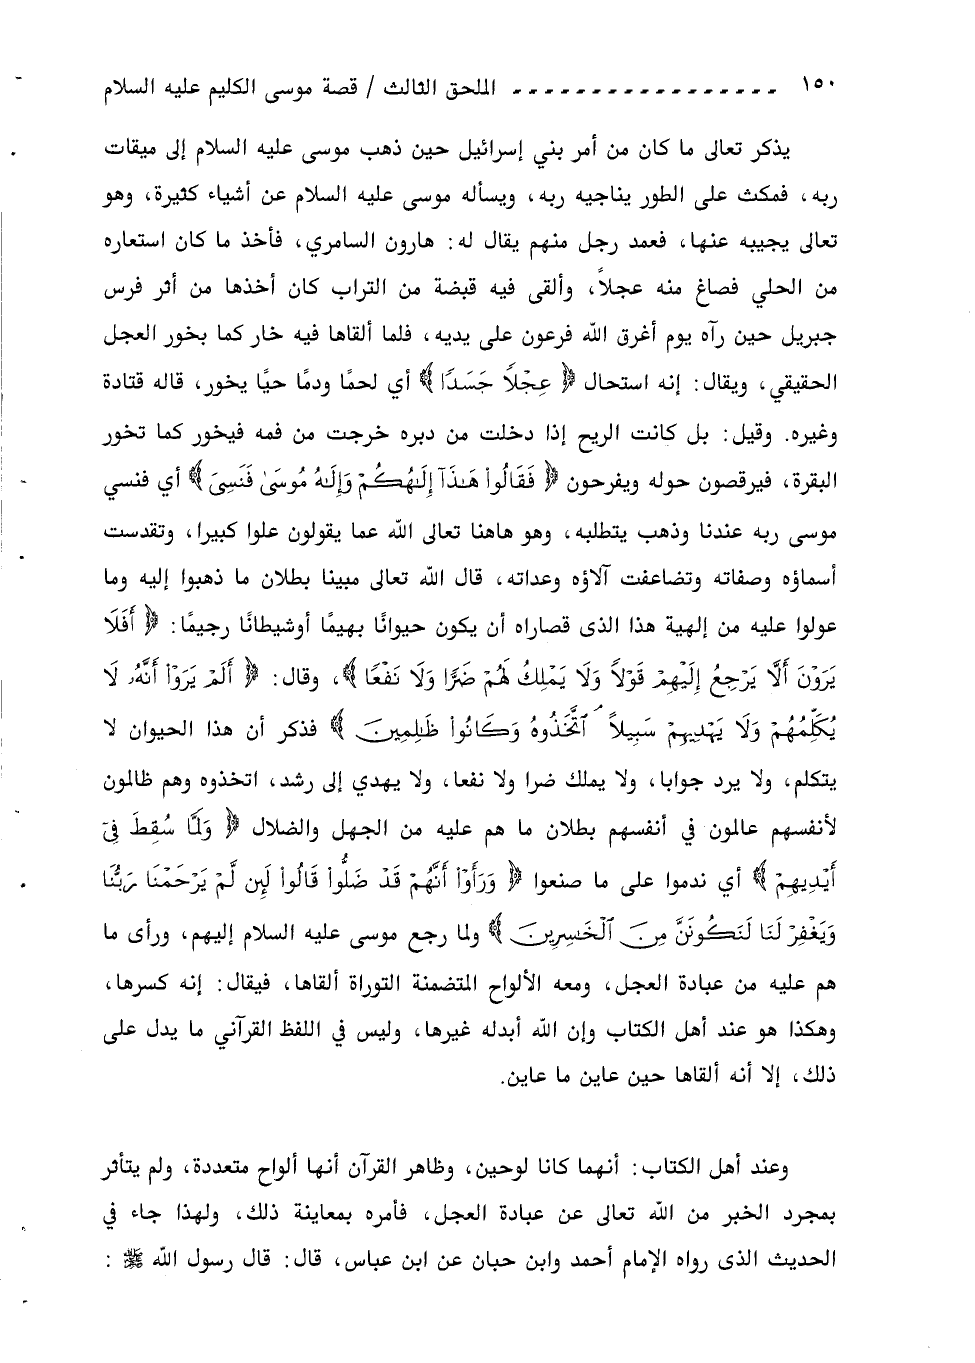 ١٥٠ ـ ـ ـ ـ ـ ـ ـ ـ ـ ـ ـ ـ ـ ـ ـ ـ ـ الملحق الثالث / قصة موسى الكليم عليه السلام
يذكر تعالى ما كان من أمر بني إسرائيل حين ذهب موسى عليه السلام إلى ميقات
ربه، فمكث على الطور يناجيه ربه، ويسأله موسى عليه السلام عن أشياء كثيرة، وهو
تعالى يجيبه عنها، فعمد رجل منهم يقال له: هارون السامري، فأخذ ما كان استعاره
من الحلي فصاغ منه عجلاً، وألقى فيه قبضة من التراب كان أخذها من أثر فرس
جبريل حين رآه يوم أغرق الله فرعون على يديه، فلما ألقاها فيه خار كما بخور العجل
الحقيقي، ويقال: إنه استحال ﴿ عِجْلاً جَسَدًا ﴾ أي لحمًا ودمًا حيًا يخور، قاله قتادة
وغيره. وقيل: بل كانت الريح إذا دخلت من دبره خرجت من فمه فيخور كما تخور
البقرة، فيرقصون حوله ويفرحون ﴿ فَقَالُوا۟ هَـٰذَآ إِلَـٰهُكُمْ وَإِلَـٰهُ مُوسَىٰ فَنَسِىَ ﴾ أي فنسي
موسى ربه عندنا وذهب يتطلبه، وهو هاهنا تعالى الله عما يقولون علوا كبيرا، وتقدست
أسماؤه وصفاته وتضاعفت آلاؤه وعداته، قال الله تعالى مبينا بطلان ما ذهبوا إليه وما
عولوا عليه من إلهية هذا الذى قصاراه أن يكون حيوانًا بهيمًا أوشيطانًا رجيمًا: ﴿ أَفَلَا
يَرَوْنَ أَلَّا يَرْجِعُ إِلَيْهِمْ قَوْلاً وَلَا يَمْلِكُ لَهُمْ ضَرًّا وَلَا نَفْعًا ﴾، وقال: ﴿ أَلَمْ يَرَوْا۟ أَنَّهُۥ لَا
يُكَلِّمُهُمْ وَلَا يَهْدِيهِمْ سَبِيلاً ٱتَّخَذُوهُ وَكَانُوا۟ ظَـٰلِمِينَ ﴾ فذكر أن هذا الحيوان لا
يتكلم، ولا يرد جوابا، ولا يملك ضرا ولا نفعا، ولا يهدي إلى رشد، اتخذوه وهم ظالمون
لأنفسهم عالمون في أنفسهم بطلان ما هم عليه من الجهل والضلال ﴿ وَلَمَّا سُقِطَ فِىٓ
أَيْدِيهِمْ ﴾ أي ندموا على ما صنعوا ﴿ وَرَأَوْا۟ أَنَّهُمْ قَدْ ضَلُّوا۟ قَالُوا۟ لَئِن لَّمْ يَرْحَمْنَا رَبُّنَا
وَيَغْفِرْ لَنَا لَنَكُونَنَّ مِنَ ٱلْخَـٰسِرِينَ ﴾ ولما رجع موسى عليه السلام إليهم، ورأى ما
هم عليه من عبادة العجل، ومعه الألواح المتضمنة التوراة ألقاها، فيقال: إنه كسرها،
وهكذا هو عند أهل الكتاب وإن الله أبدله غيرها، وليس في اللفظ القرآني ما يدل على
ذلك، إلا أنه ألقاها حين عاين ما عاين.
وعند أهل الكتاب: أنهما كانا لوحين، وظاهر القرآن أنها ألواح متعددة، ولم يتأثر
بمجرد الخبر من الله تعالى عن عبادة العجل، فأمره بمعاينة ذلك، ولهذا جاء في
الحديث الذى رواه الإمام أحمد وابن حبان عن ابن عباس، قال: قال رسول الله ﷺ :